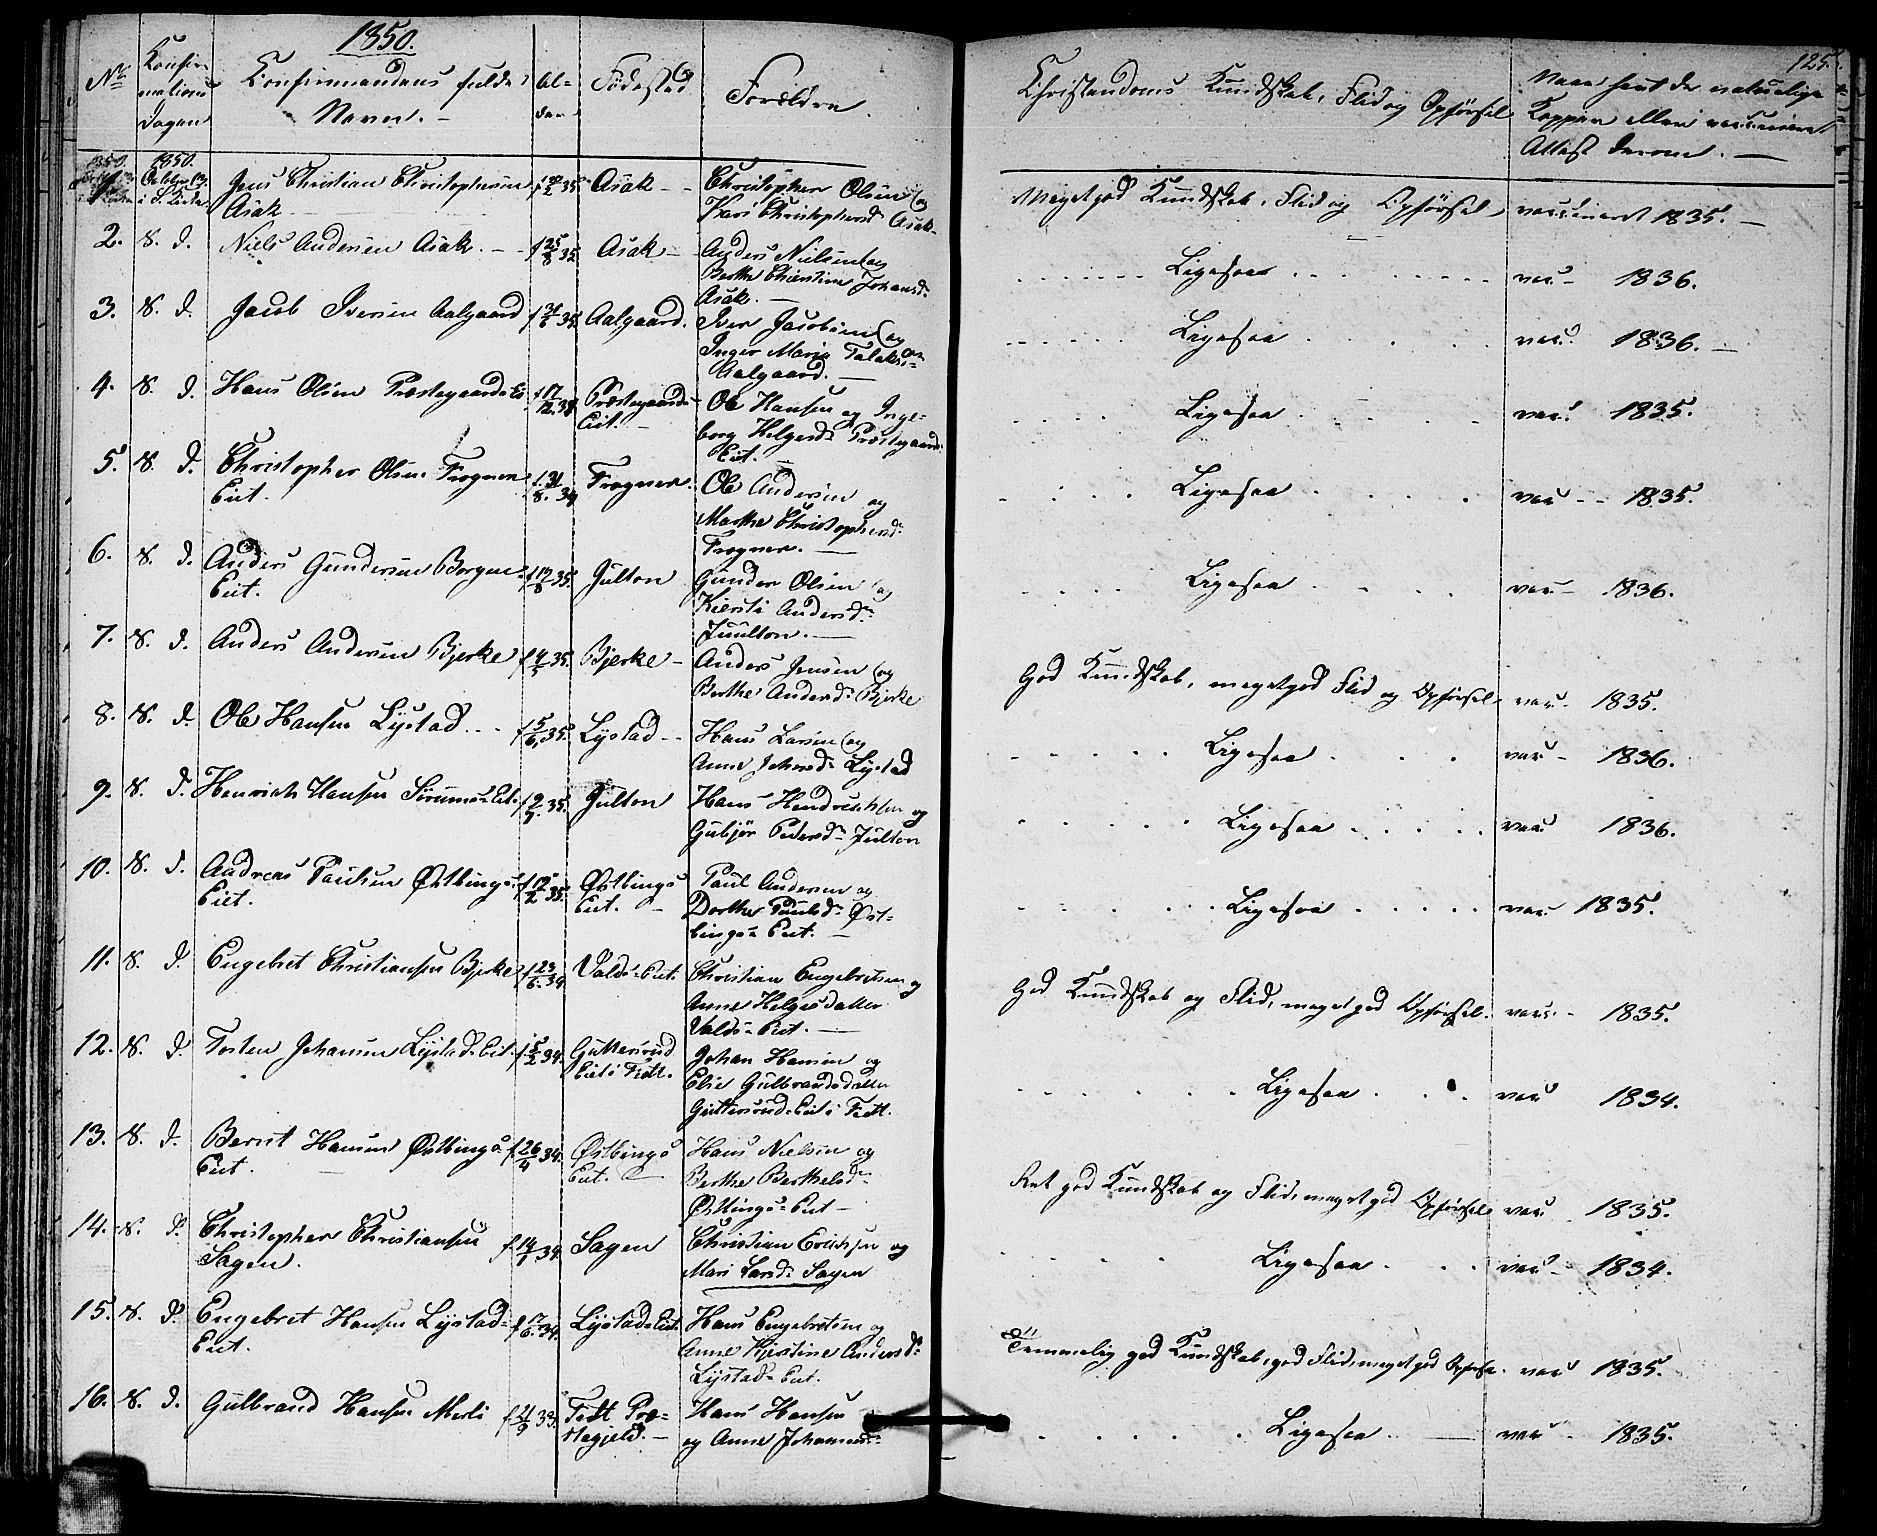 1850.
125.
No Confirmations Dagen Confirmandens fulde Navn. Alder Födested og Forældre Christendoms Kundskab, Flid og Opförsel Naar havt de naturlige Kopper eller vaccineret Attest derom.
1. 1850. October 13 Jens Christian Christophersen Asak f 35 Asak Christopher Olsen og Kari Christophersd. Asak Meget god Kundskab, Flid og Opförsel, vaccineret 1835.
2. S. D. Niels Andersen Asak. f 25/8 35 Asak Anders Nielsen og Berthe Christine Johansd. Asak. Ligesaa vac. 1836.
3. S. D. Jacob Iversen Aalgaard f 35. Aalgaard. Iver Jacobsen og Inger Marie Aalgaard. Ligesaa vac. 1836.
4. S. D. Hans Olsen Præstegaards Ei f 17/12 34 Præstegaards Eiet. Ole Hansen og Ingeborg Helgesd. Præstegaards Eiet. Ligesaa vac. 1835.
5. S. D. Christopher Olsen Frogner Eiet. f. 31/8. 34 Frogner. Ole Andersen og Marthe Christophersd. Frogner. Ligesaa vac. 1835.
6. S. D. Anders Gundersen Borgen Eiet. f 35. Julton Gunder Olsen og Kiersti Andersd. Juulton. Ligesaa vac. 1836.
7. S. D. Anders Andersen Bjerke f 35. Bjerke Anders Jensen og Berthe Andersd. Bjerke God Kundskab, meget god Flid og Opförsel. vac. 1835.
8. S. D. Ole Hansen Lystad f 5/6 35. Lystad Hans Larsen og Anne Lystad Ligesaa vac. 1836.
9. S. D. Henrich Hansen Sörums Eiet. f 35. Julton Hans Hendrichsen og Gubjör Pedersd. Julton Ligesaa vac. 1836.
10. S. D. Andreas Paulsen Östbings Eiet. f 35. Östbings Eiet. Paul Andersen og Dorthe Paulsd. Östbings Eiet. Ligesaa vac. 1835.
11. S. D. Engebret Christiansen Bjerke f 23/6. 34 Valds Eiet. Christian Engebretsen og Anne Helgesdatter Valds Eiet. God Kundskab og Flid, meget god Opförsel. vacc. 1835.
12. S. D. Torsten Johansen Lystads Eiet. f 34. Guttersrud Eiet i Fedt. Johan Hansen og Elie Gulbrandsdatter Guttersrud Eiet i Fedt. Ligesaa vac 1834.
13. S. D. Bernt Hansen Östbings Eiet. f 26/4 34. Östbings Eiet. Hans Nielsen og Berthe Berthelsd. Östbings Eiet Ret god Kundskab og Flid, meget god Opförsel vac 1835.
14. S. D. Christopher Christiansen Sagen. f 34. Sagen Christian Erichsen og Mari Larsd. Sagen Ligesaa vac. 1834.
15. S. D. Engebret Hansen Lystad Eiet. f 34. Lystads Eiet. Hans Engebretsen og Anne Kjerstine Andersd. Lystads Eiet. Temmelig god Kundskab, god Flid, meget god Opförsel. vac 1835.
16. S. D. Gulbrand Hansen Merli f 33. Fedt Præstegjeld. Hans Hansen og Anne Johannesd. Ligesaa vac. 1835.